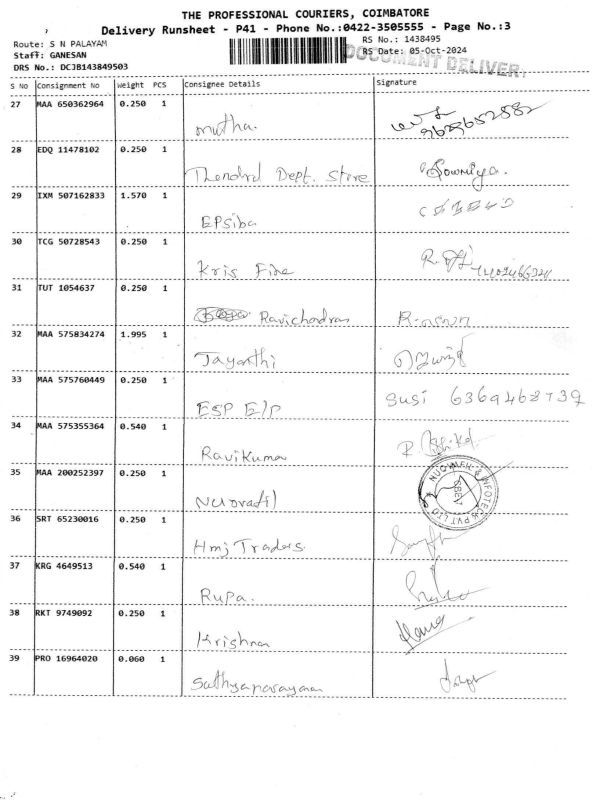 THE PROFESSIONAL COURIERS, COIMBATORE
Delivery Runsheet - P41 - Phone No.:0422-3505555 - Page No.:3
Route: S N PALAYAM
RS No.: 1438495
Staff: GANESAN
RS Date: 05-Oct-2024
DOCUMENT DELIVER
DRS No.: DCJB143849503
S No Consignment No Weight PCS Consignee Details Signature
27 MAA 650362964 0.250 1 mutha.
28 EDQ 11478102 0.250 1 Dept. Store Sowmiya.
29 IXM 507162833 1.570 1 EPsiba
30 TCG 50728543 0.250 1 Kris Fire
31 TUT 1054637 0.250 1 Ravichandran
32 MAA 575834274 1.995 1 Jayanthi
33 MAA 575760449 0.250 1 ESP E/P Susi
34 MAA 575355364 0.540 1 Ravikumar
35 MAA 200252397 0.250 1
INFOTECH PVT LTD
36 SRT 65230016 0.250 1 Hmj Traders
37 KRG 4649513 0.540 1 Rupa.
38 RKT 9749092 0.250 1 Krishna
39 PRO 16964020 0.060 1 Sathyanarayanan